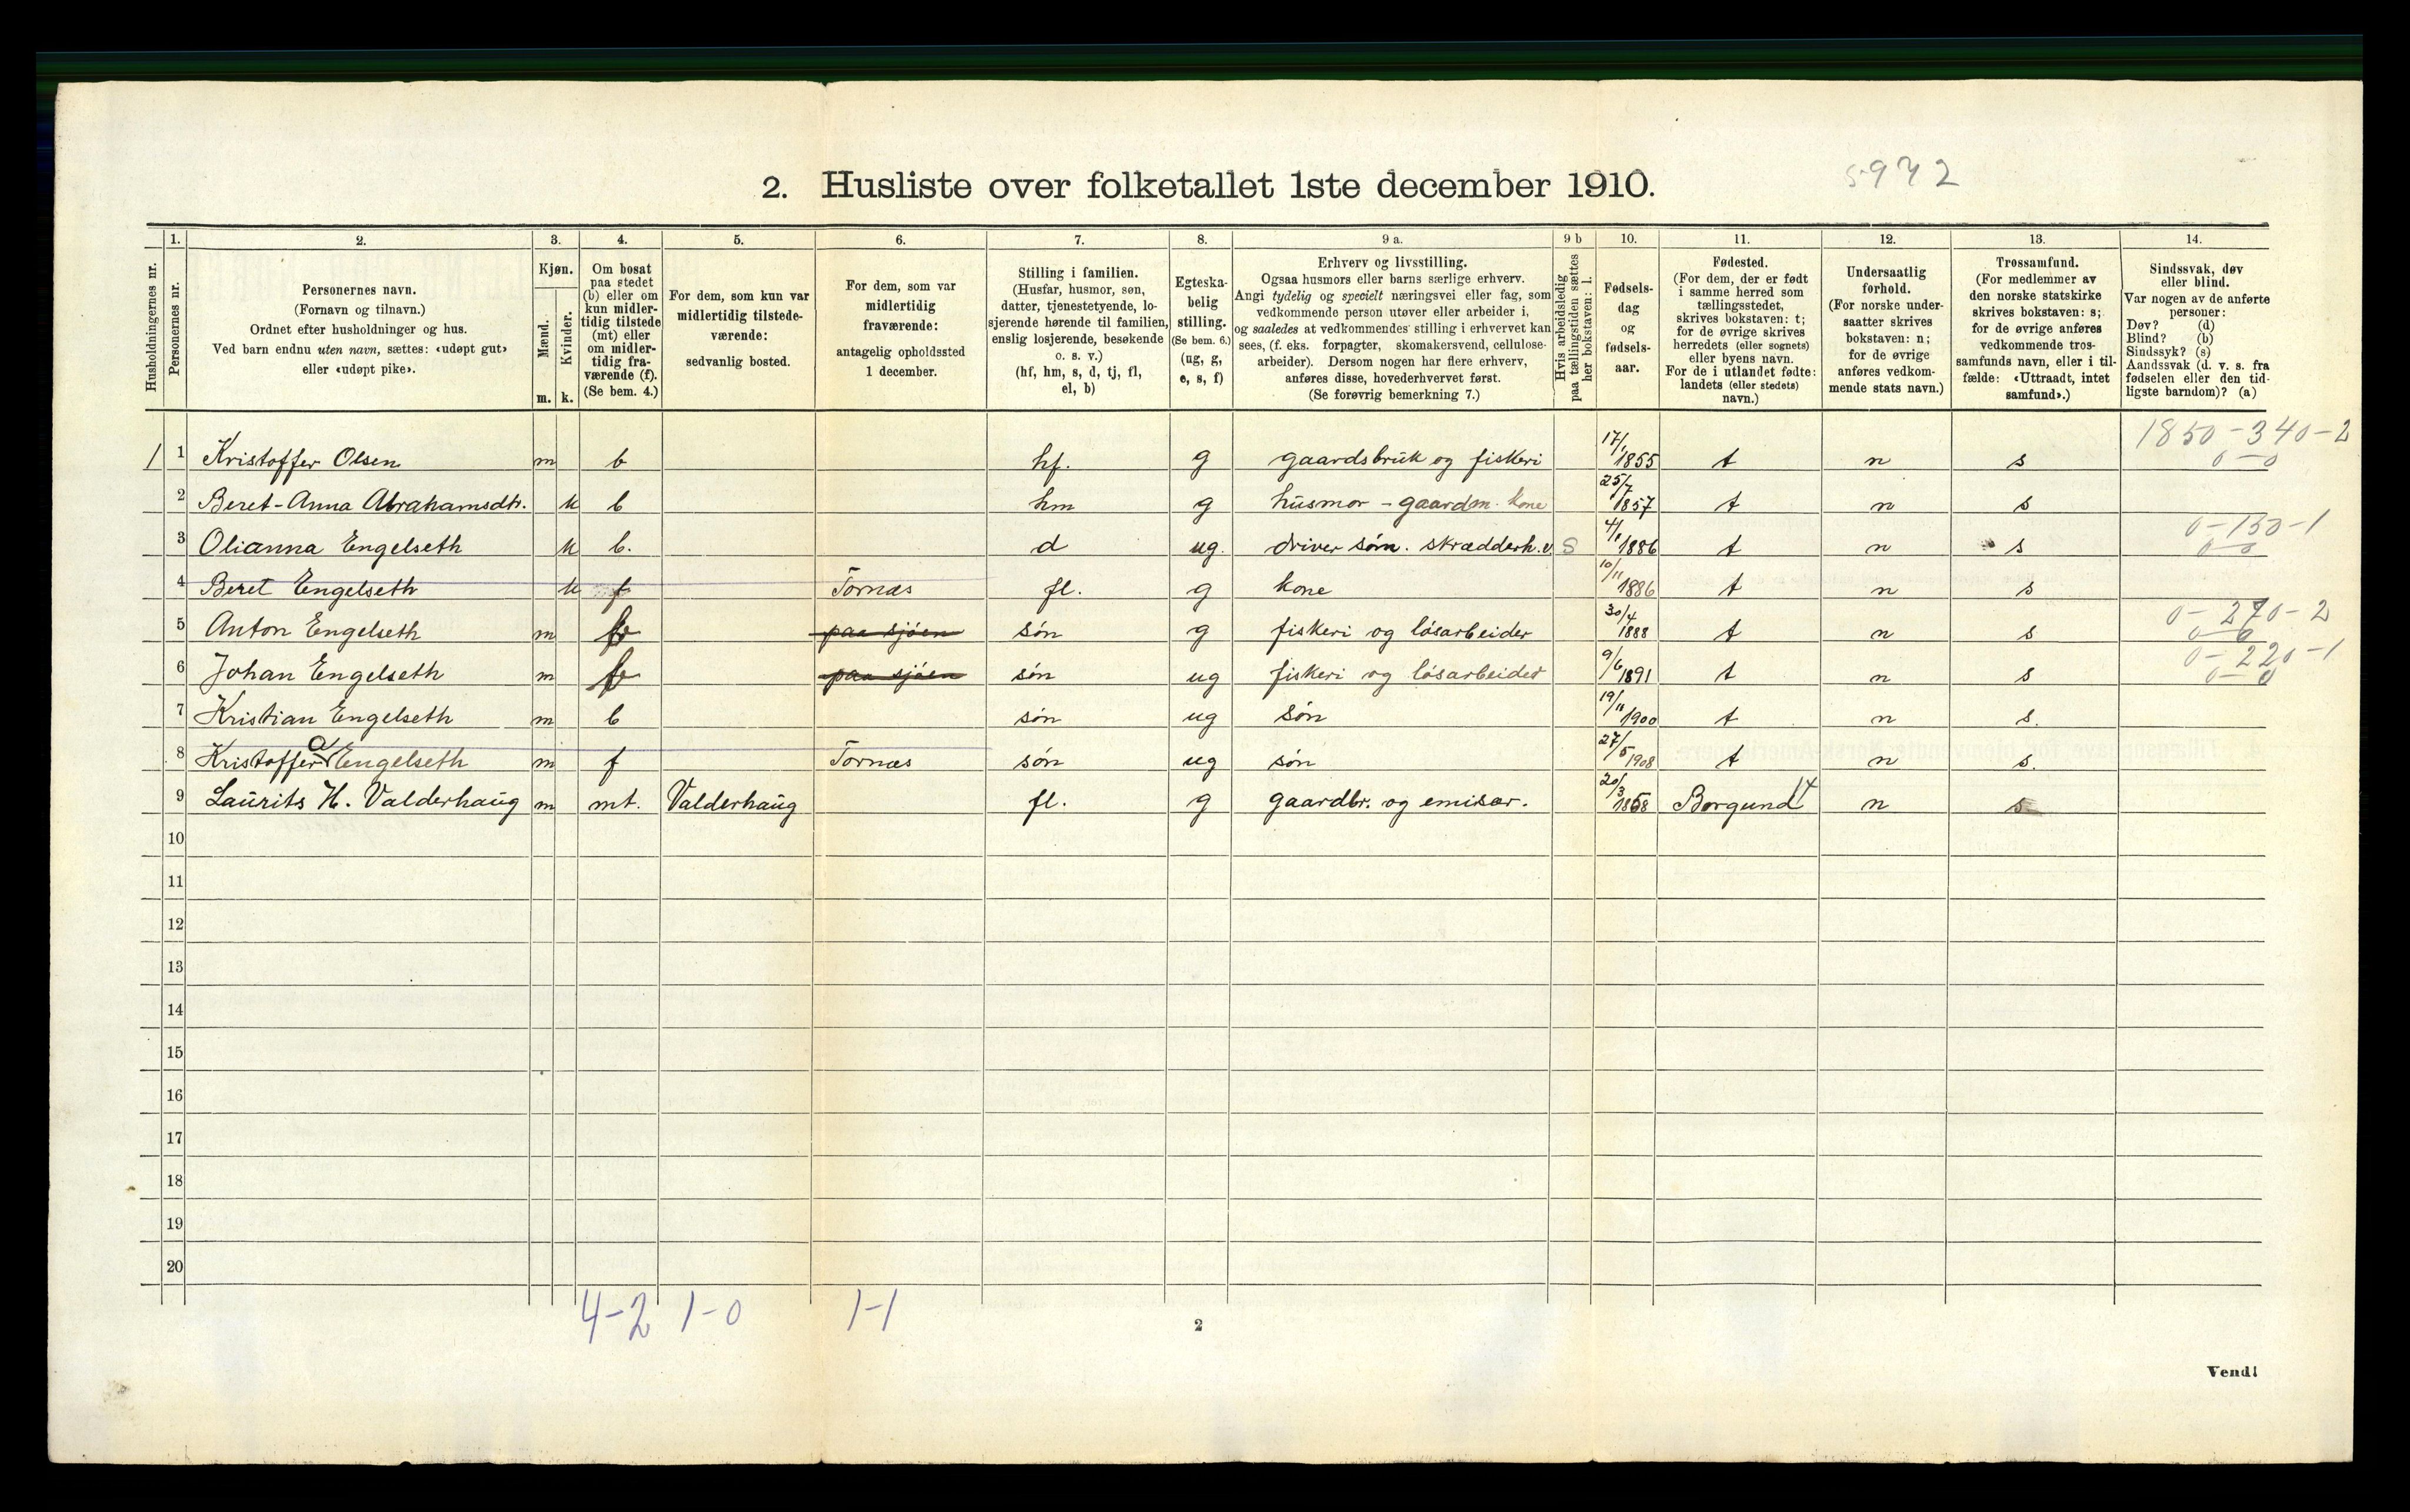 2. Husliste over folketallet 1ste december 1910.
5972
1. 2. 3. 4. 5. 6. 7. 8. 9 a. 9 b 10. 11. 12. 13. 14.
Husholdningernes nr.
Personernes nr.
Personernes navn.
(Fornavn og tilnavn.)
Ordnet efter husholdninger og hus.
Ved barn endnu uten navn, sættes: «udøpt gut»
eller «udøpt pike».
Kjøn.
Mænd.
Kvinder.
m. k.
Om bosat
paa stedet
(b) eller om
kun midler-
tidig tilstede
(mt) eller
om midler-
tidig fra-
værende (f).
(Se bem. 4.)
For dem, som kun var
midlertidig tilstede-
værende:
sedvanlig bosted.
For dem, som var
midlertidig
fraværende:
antagelig opholdssted
1 december.
Stilling i familien.
(Husfar, husmor, søn,
datter, tjenestetyende, lo-
sjerende hørende til familien,
enslig losjerende, besøkende
o. s. v.)
(hf, hm, s, d, tj, fl,
el, b)
Egteska-
belig
stilling.
(Se bem. 6.)
(ug, g,
e, s, f)
Erhverv og livsstilling.
Ogsaa husmors eller barns særlige erhverv.
Angi tydelig og specielt næringsvei eller fag, som
vedkommende person utøver eller arbeider i,
og saaledes at vedkommendes stilling i erhvervet kan
sees, (f. eks. forpagter, skomakersvend, cellulose-
arbeider). Dersom nogen har flere erhverv,
anføres disse, hovederhvervet først.
(Se forøvrig bemerkning 7.)
Hvis arbeidsledig
paa tællingstiden sættes
her bokstaven: l.
Fødsels-
dag
og
fødsels-
aar.
Fødested.
(For dem, der er født
i samme herred som
tællingsstedet,
skrives bokstaven: t;
for de øvrige skrives
herredets (eller sognets)
eller byens navn.
For de i utlandet fødte:
landets (eller stedets)
navn.)
Undersaatlig
forhold.
(For norske under-
saatter skrives
bokstaven: n;
for de øvrige
anføres vedkom-
mende stats navn.)
Trossamfund.
(For medlemmer av
den norske statskirke
skrives bokstaven: s;
for de øvrige anføres
vedkommende tros-
samfunds navn, eller i til-
fælde: «Uttraadt, intet
samfund».)
Sindssvak, døv
eller blind.
Var nogen av de anførte
personer:
Døv? (d)
Blind? (b)
Sindssyk? (s)
Aandssvak (d. v. s. fra
fødselen eller den tid-
ligste barndom)? (a)
1850-340-2
1 1 Kristoffer Olsen m b hf. g gaardsbruk og fiskeri 17/1 1855 t n s 0-0
2 Beret-Anna Abrahamsdtr. k b hm g husmor - gaardm. kone 25/7 1857 t n s
0-130-1
3 Olianna Engelseth k b. d ug. driver søm. skrædderh.v. S 4/1 1886 t n s 0-0
4 Beret Engelseth k f Tornæs fl. g kone 10/11 1886 t n s
0-270-2
5 Anton Engelseth m b paa sjøen søn g fiskeri og løsarbeider 30/4 1888 t n s 0-0
0-220-1
6 Johan Engelseth m b paa sjøen søn ug fiskeri og løsarbeider 9/6 1891 t n s 0-0
7 Kristian Engelseth m b søn ug søn 19/11 1900 t n s.
8 Kristoffer A Engelseth m f Tornæs søn ug søn 27/5 1908 t n s.
9 Laurits H. Valderhaug m mt. Valderhaug fl. g gaardbr. og emisær. 20/3 1868 Borgund 14 n s
10
11
12
13
14
15
16
17
18
19
20
4-2 1-0 1-1
2
Vend!